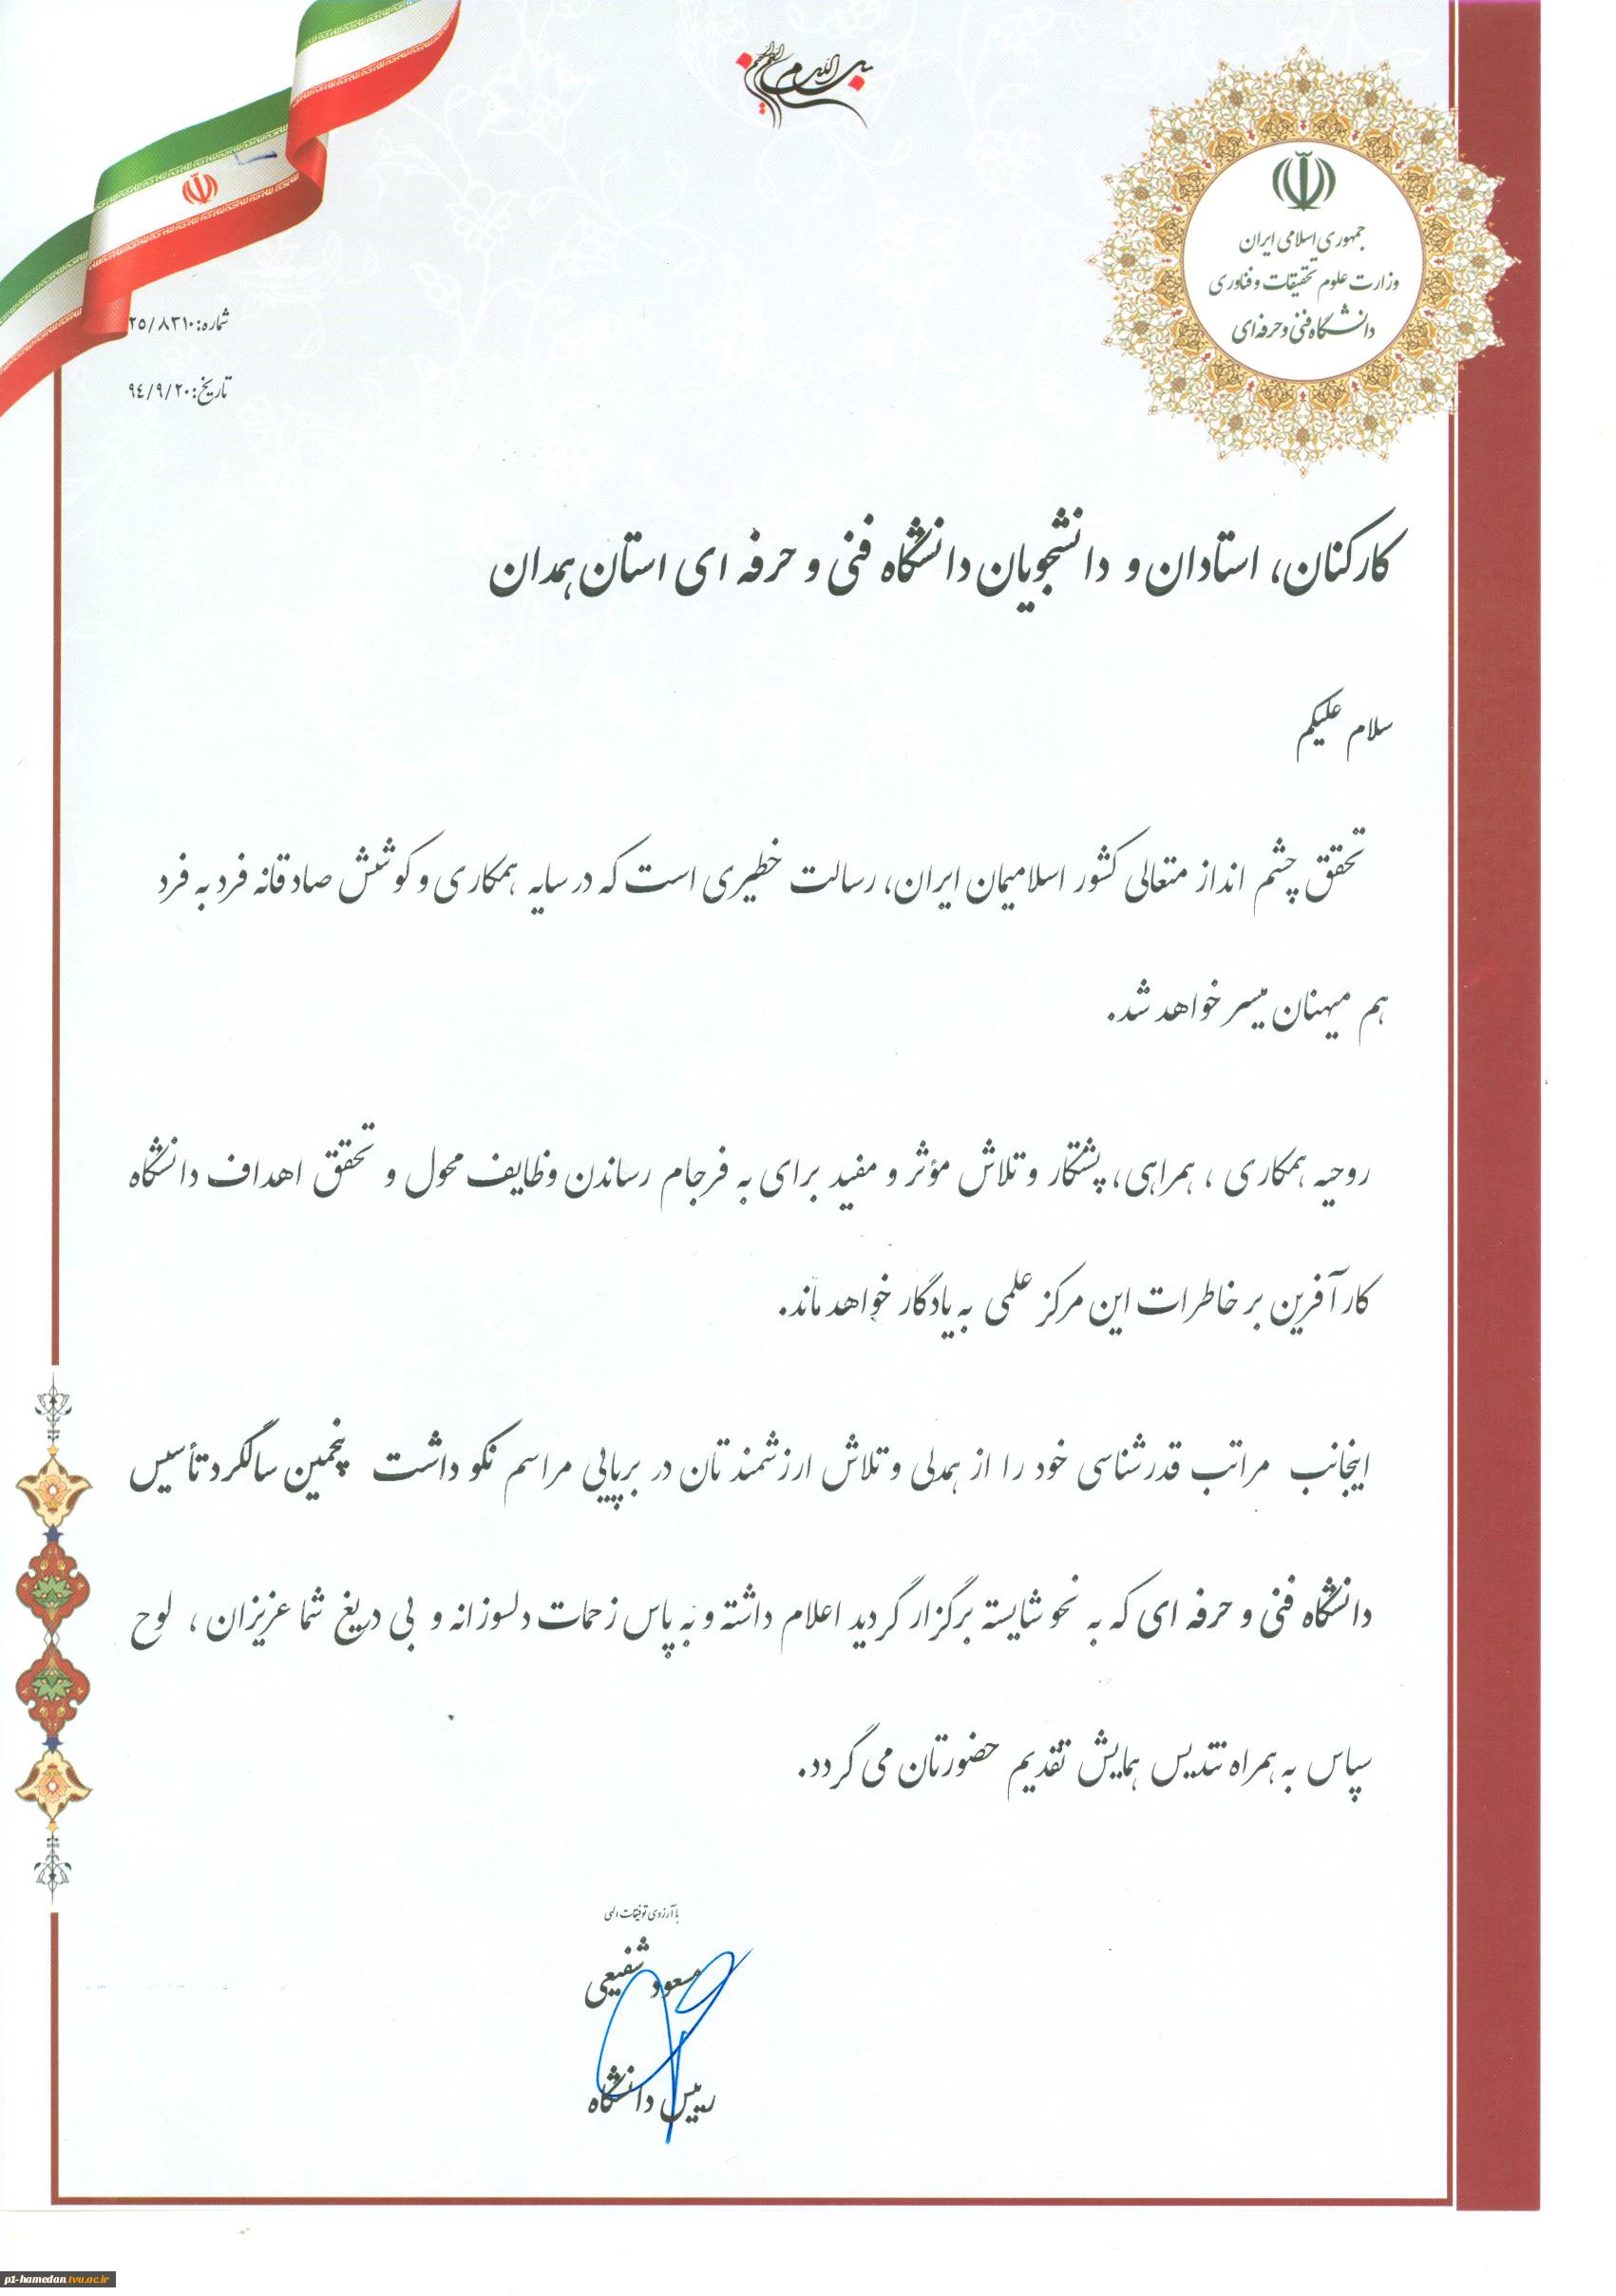 بسم الله الرحمن الرحیم
جمهوری اسلامی ایران
وزارت علوم تحقیقات و فناوری
دانشگاه فنی و حرفه ای
شماره: ۲۵/۸۳۱۰
تاریخ: ۹٤/۹/۲۰
کارکنان، استادان و دانشجویان دانشگاه فنی و حرفه ای استان همدان
سلام علیکم
تحقق چشم انداز متعالی کشور اسلامیمان ایران، رسالت خطیری است که در سایه همکاری و کوشش صادقانه فرد به فرد
هم میهنان میسر خواهد شد.
روحیه همکاری ، همراهی، پشتکار و تلاش مؤثر و مفید برای به فرجام رساندن وظایف محول و تحقق اهداف دانشگاه
کارآفرین بر خاطرات این مرکز علمی به یادگار خواهد ماند.
اینجانب مراتب قدرشناسی خود را از همدلی و تلاش ارزشمندتان در برپایی مراسم نکو داشت پنجمین سالگرد تأسیس
دانشگاه فنی و حرفه ای که به نحو شایسته برگزار گردید اعلام داشته و به پاس زحمات دلسوزانه و بی دریغ شما عزیزان ، لوح
سپاس به همراه تندیس همایش تقدیم حضورتان می گردد.
با آرزوی توفیقات الهی
مسعود شفیعی
رییس دانشگاه
p1-hamedan.tvu.ac.ir